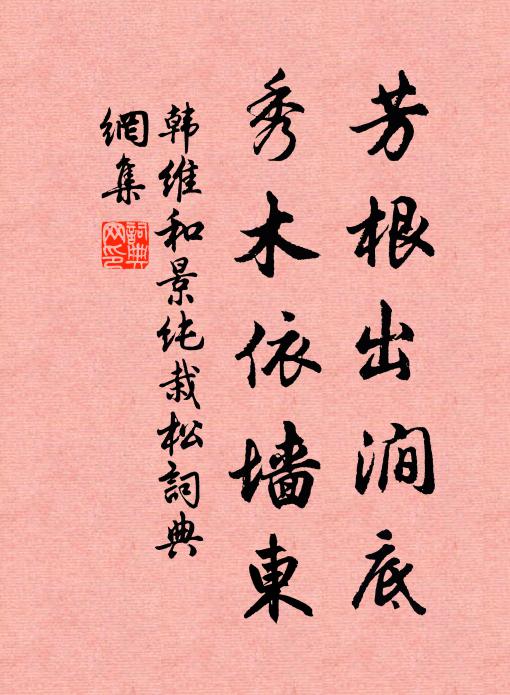 芳根出涧底
秀木依墙東
韩维和景纯栽松詞典
網集
詞典網印